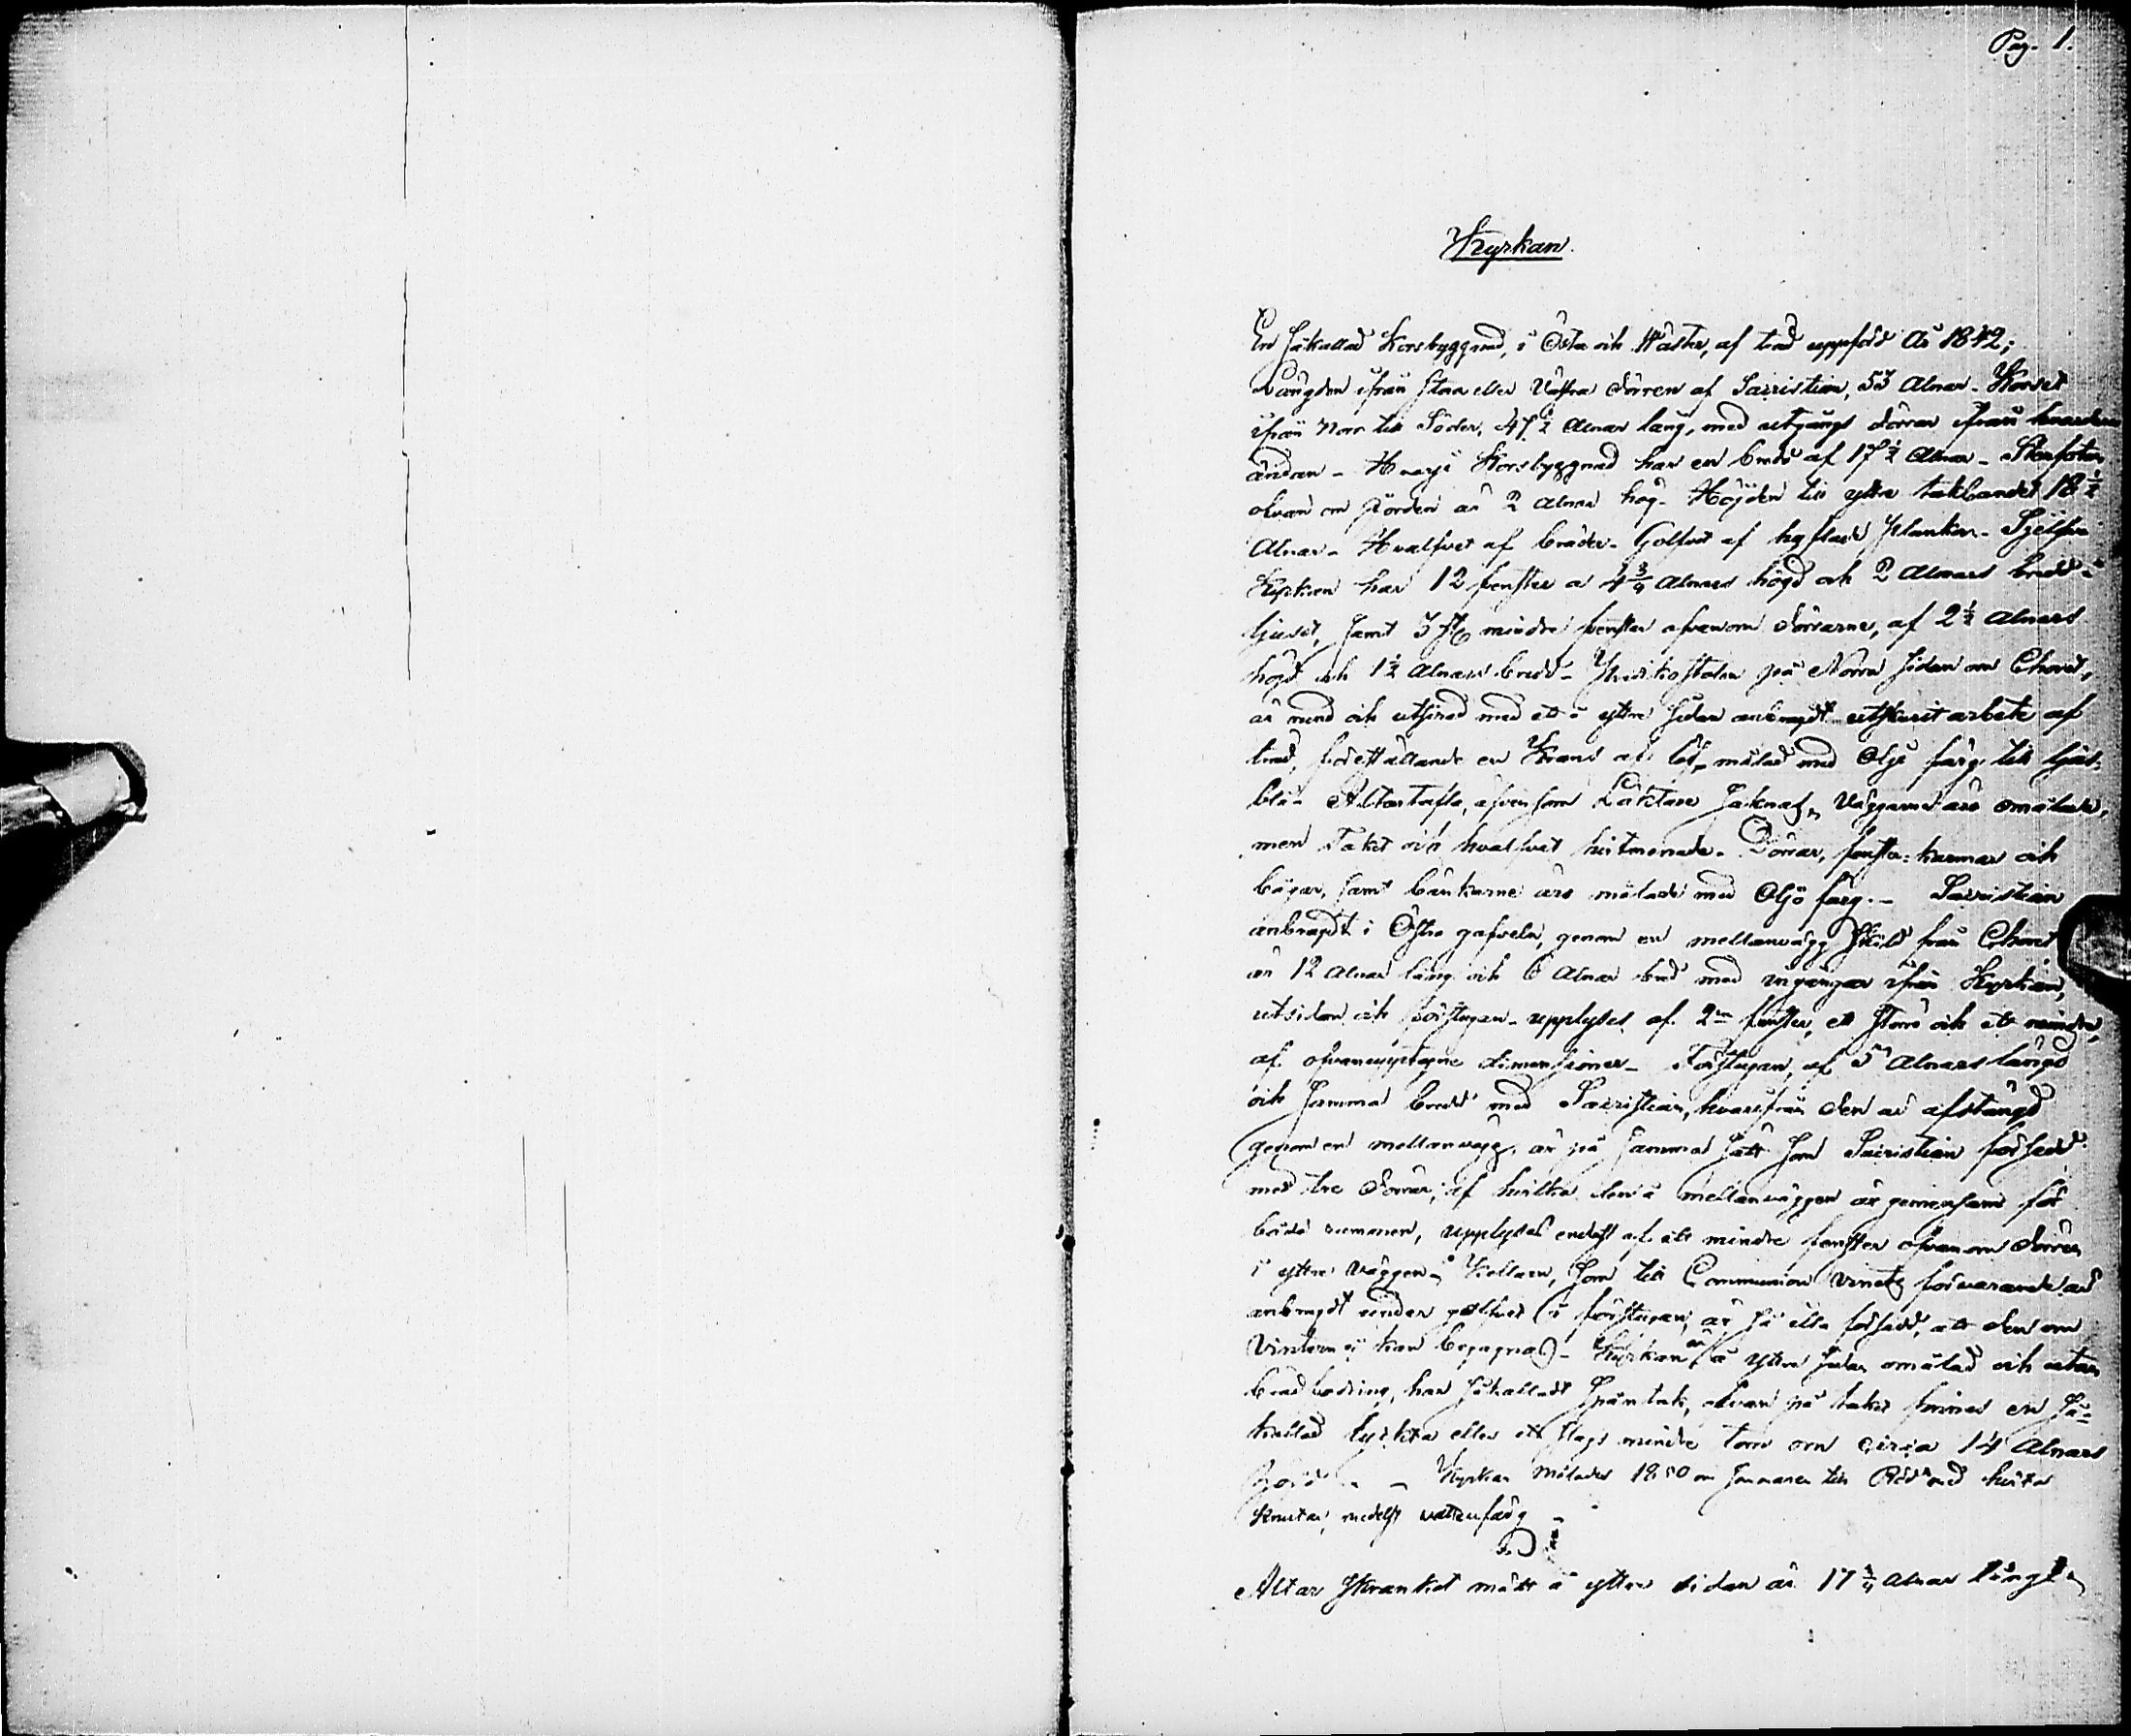 Pag. 1.
Kyrkan.
En såkallad Korsbyggnad, i Öster och Wäster, af träd uppförd År 1842;
Längden ifrån stora eller Västra dörren af Sacristian, 53 Alnar. Korset
ifrån Norr till Söder, 47 1/2 Alnar lång, med utgångs dörrar ifrån hvardera
ändan - Hvarje Korsbyggnad har en bredd af 17 1/2 Alnar - Stenfoten
ofvan om jorden är 2 Alnar hög. Höjden till yttre takbandet 18 1/2
Alnar - Hvalfvet af bräder. Golfvet af hyflade Plankor. Sjelfva
Kyrkan har 12 fenster a 4 3/4 Alnars högd och 2 Alnars bredd i
ljuset, samt 3 st mindre fenster ofvanom dörrarne, af 2 1/2 Alnars
högd och 1 1/2 Alnars bredd - Predikostolen på Norra sidan om Choret,
är rund och utsirad med ett å yttre sidan anbragdt utskurit arbete af
träd, föreställande en Krans af löf, målad med Olje färg till ljus-
blå. Altartafla, äfvensom Läktare saknas, Väggarne äro omålade,
men Taket och hvalfvet hvitmenade. Dörrar, fenster-karmar och
bågar, samt bänkarne äro målade med Oljo färg. - Sacristian
anbragdt i Östra gafveln, genom en mellanvägg skild från Choret
är 12 Alnar lång och 6 Alnar bred med ingångar ifrån Kyrkan,
utsidan och förstugan - upplyses af 2ne fenster, ett större och ett mindre,
af ofvanuptagne dimensioner - Förstugan, af 5 Alnars längd
och samma bredd med Sacristian, hvarifrån den är afstängd
genom en mellanvägg, är på samma sätt som Sacristian försedd
med tre dörrar, af hvilka den å mellanväggen är gemensam för
både rummen, upplyses endast af ett mindre fenster ofvanom dörren
i yttre väggen. Kellaren, som till Communion vinets förvarande är
anbragdt under golfvet i förstugan, är så illa försedd, att den om
Vintern ej kan begagnas - Kyrkan är å yttre sidan omålad och utan
brädfodring, har såkalladt Spåntak, ofvan på taket finnes en så-
kallad Lyckta eller ett slags mindre torn om circa 14 Alnars
höjd. - Kyrkan målades 1850 om sommaren till Röd med hvita
knutar, medelst vattenfärg -
Altar Skranket mätt å yttre sidan är 17 3/4 Alnar långt.